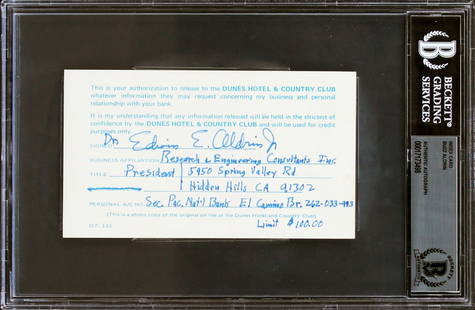 This is your authorization to release to the DUNES HOTEL & COUNTRY CLUB
whatever information they may request concerning my business and personal
relationship with your bank.
It is my understanding that any information released will be held in the strictest of
confidence by the DUNES HOTEL & COUNTRY CLUB and will be used for credit
purposes only.
Dr. Edwin E. Aldrin Jr
BUSINESS AFFILIATION Research & Engineering Consultants Inc.
TITLE President 5950 Spring Valley Rd
Hidden Hills CA 91302
PERSONAL A/C NO. Sec. Pac. Nat'l Bank El Camino Br. 262-033-993
(This is a photo copy of the original on file at the Dunes Hotel and Country Club)
Limit $100.00
BECKETT
GRADING
SERVICES
INDEX CARD
BUZZ ALDRIN
AUTHENTIC AUTOGRAPH
BECKETT